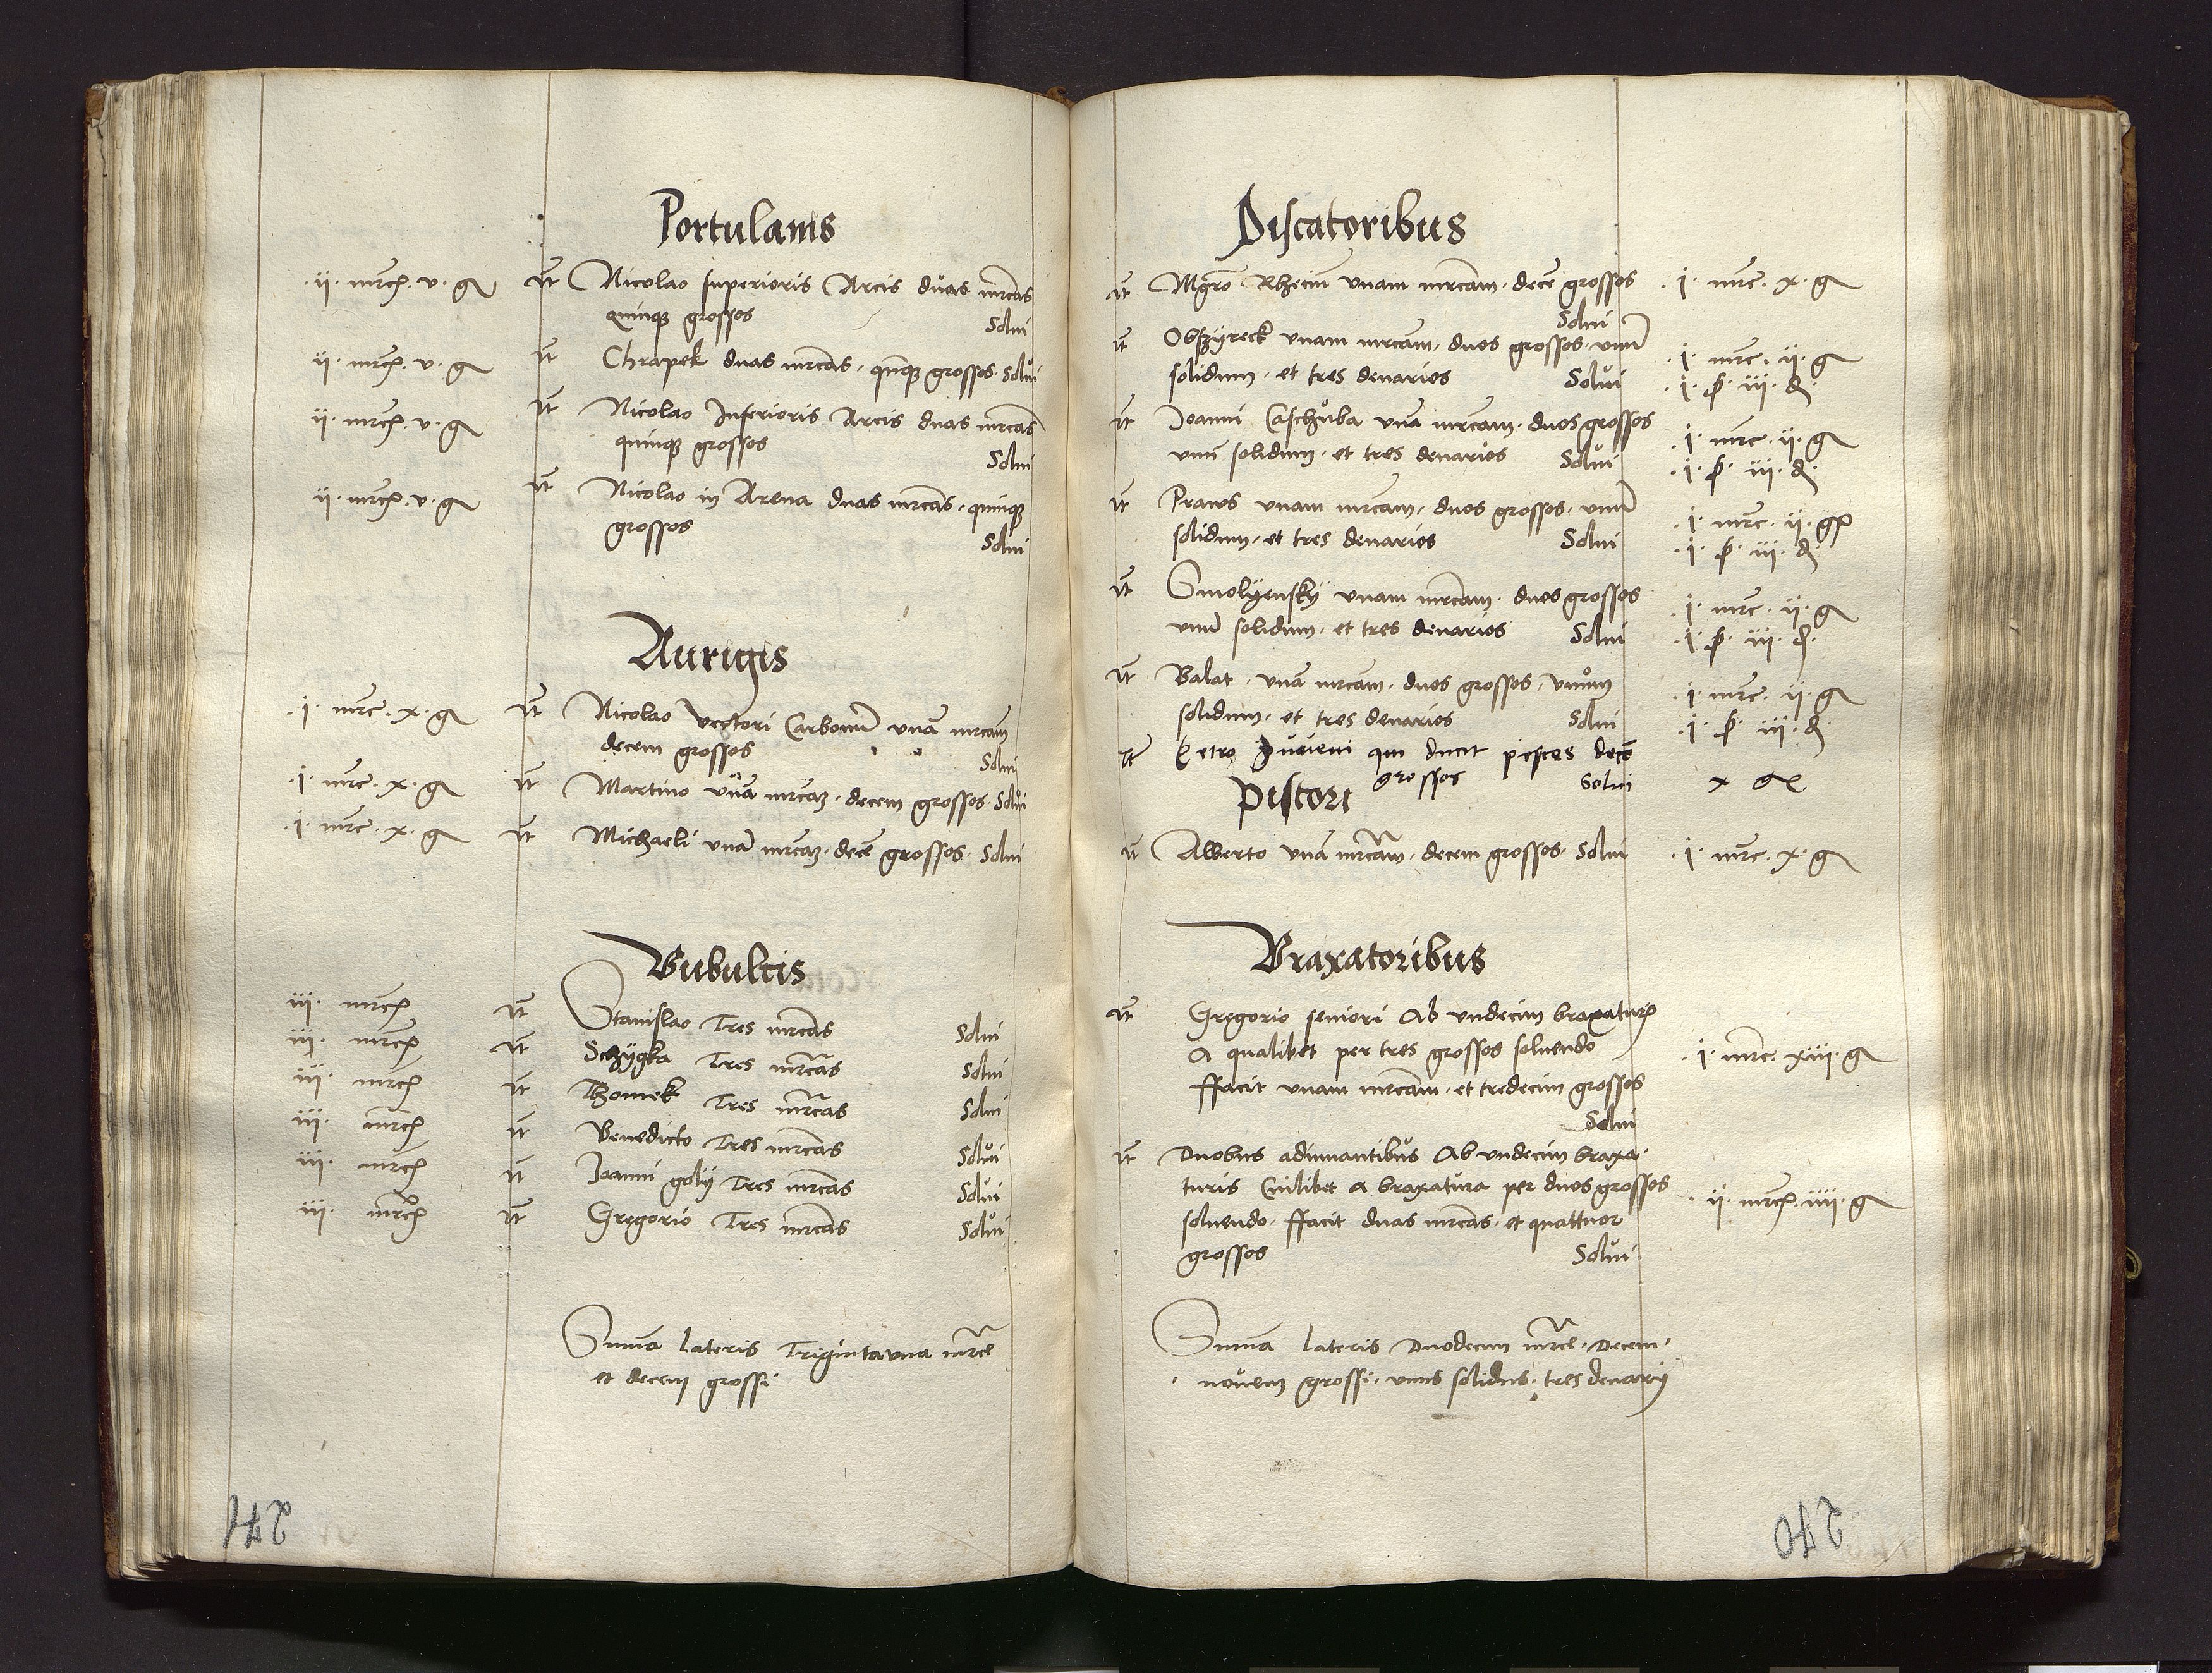 Portulanis
.ij. mrc. v. g. It Nicolao superioris Arcis duas mrcas
quinqz grossos Solui
ij. mrc. v. g It Chrapek duas mrcas, quinqz grossos. Solui
ij. mrc. v. g It Nicolao Inferioris Arcis duas mrcas
quinqz grossos Solui
ij. mrc. v. g It Nicolao in Arena duas mrcas, quinqz
grossos Solui
Aurigis
.j. mrc. x. g It Nicolao vectori Carbonu unā mrcam
decem grossos Solui
.j. mrc. x. g It Martino unā mrcaz. decem grossos. Solui
.j. mrc. x. g It Michaeli unā mrcaz. decē grossos. Solui
Bubulcis
iij. mrc It Stanislao Tres mrcas Solui
iij. mrc It Schÿgka Tres mrcas Solui
iij. mrc It Thomek Tres mrcas Solui
iij. mrc It Benedicto Tres mrcas Solui
iij. mrc It Joanni golÿ Tres mrcas Solui
iij. mrc It Gregorio Tres mrcas Solui
Suma lateris Trigintauna mrce
et decem grossi
271
Piscatoribus
It Mgro unam mrcam. decē grossos .j. mrc. x. g
Solui
It Obszÿreck unam mrcam, duos grossos. unū .j. mrc. ij. g
solidum. et tres denarios Solui .j. ß. iij. d.
It Joanni Caschuba unā mrcam. duos grossos .j. mrc. ij. g
unū solidum. et tres denarios Solui .j. ß. iij. d.
It Praws unam mrcam, duos grossos. unū .j. mrc. ij. g
solidum. et tres denarios Solui .j. ß. iij. d
It Smolÿenskÿ unam mrcam. duos grossos .j. mrc. ij. g
unū solidum. et tres denarios Solui .j. ß. iij. d.
It Balat. unā mrcam. duos grossos, unum .j. mrc. ij. g
solidum. et tres denarios Solui .j. ß. iij. d
It Petro Iuveni qui ducit pisces decē
grossos Solui x g
Pistori
It Alberto unā mrcam. decem grossos. Solui .j. mrc. x. g
Braxatoribus
It Gregorio seniori Ab undecim braxaturis
A qualibet per tres grossos soluendo .j. mrc. xiij. g
ffacit unam mrcam. et tredecim grossos
Solui
It Duobus adiuuantibus Ab undecim braxa-
turis Cuilibet a braxatura per duos grossos .ij. mrc. iiij. g
soluendo. ffacit duas mrcas. et quattuor
grossos Solui
Suma lateris Duodecim mrce. Decem-
nouem grossi. unus solidus. tres denarÿ
270